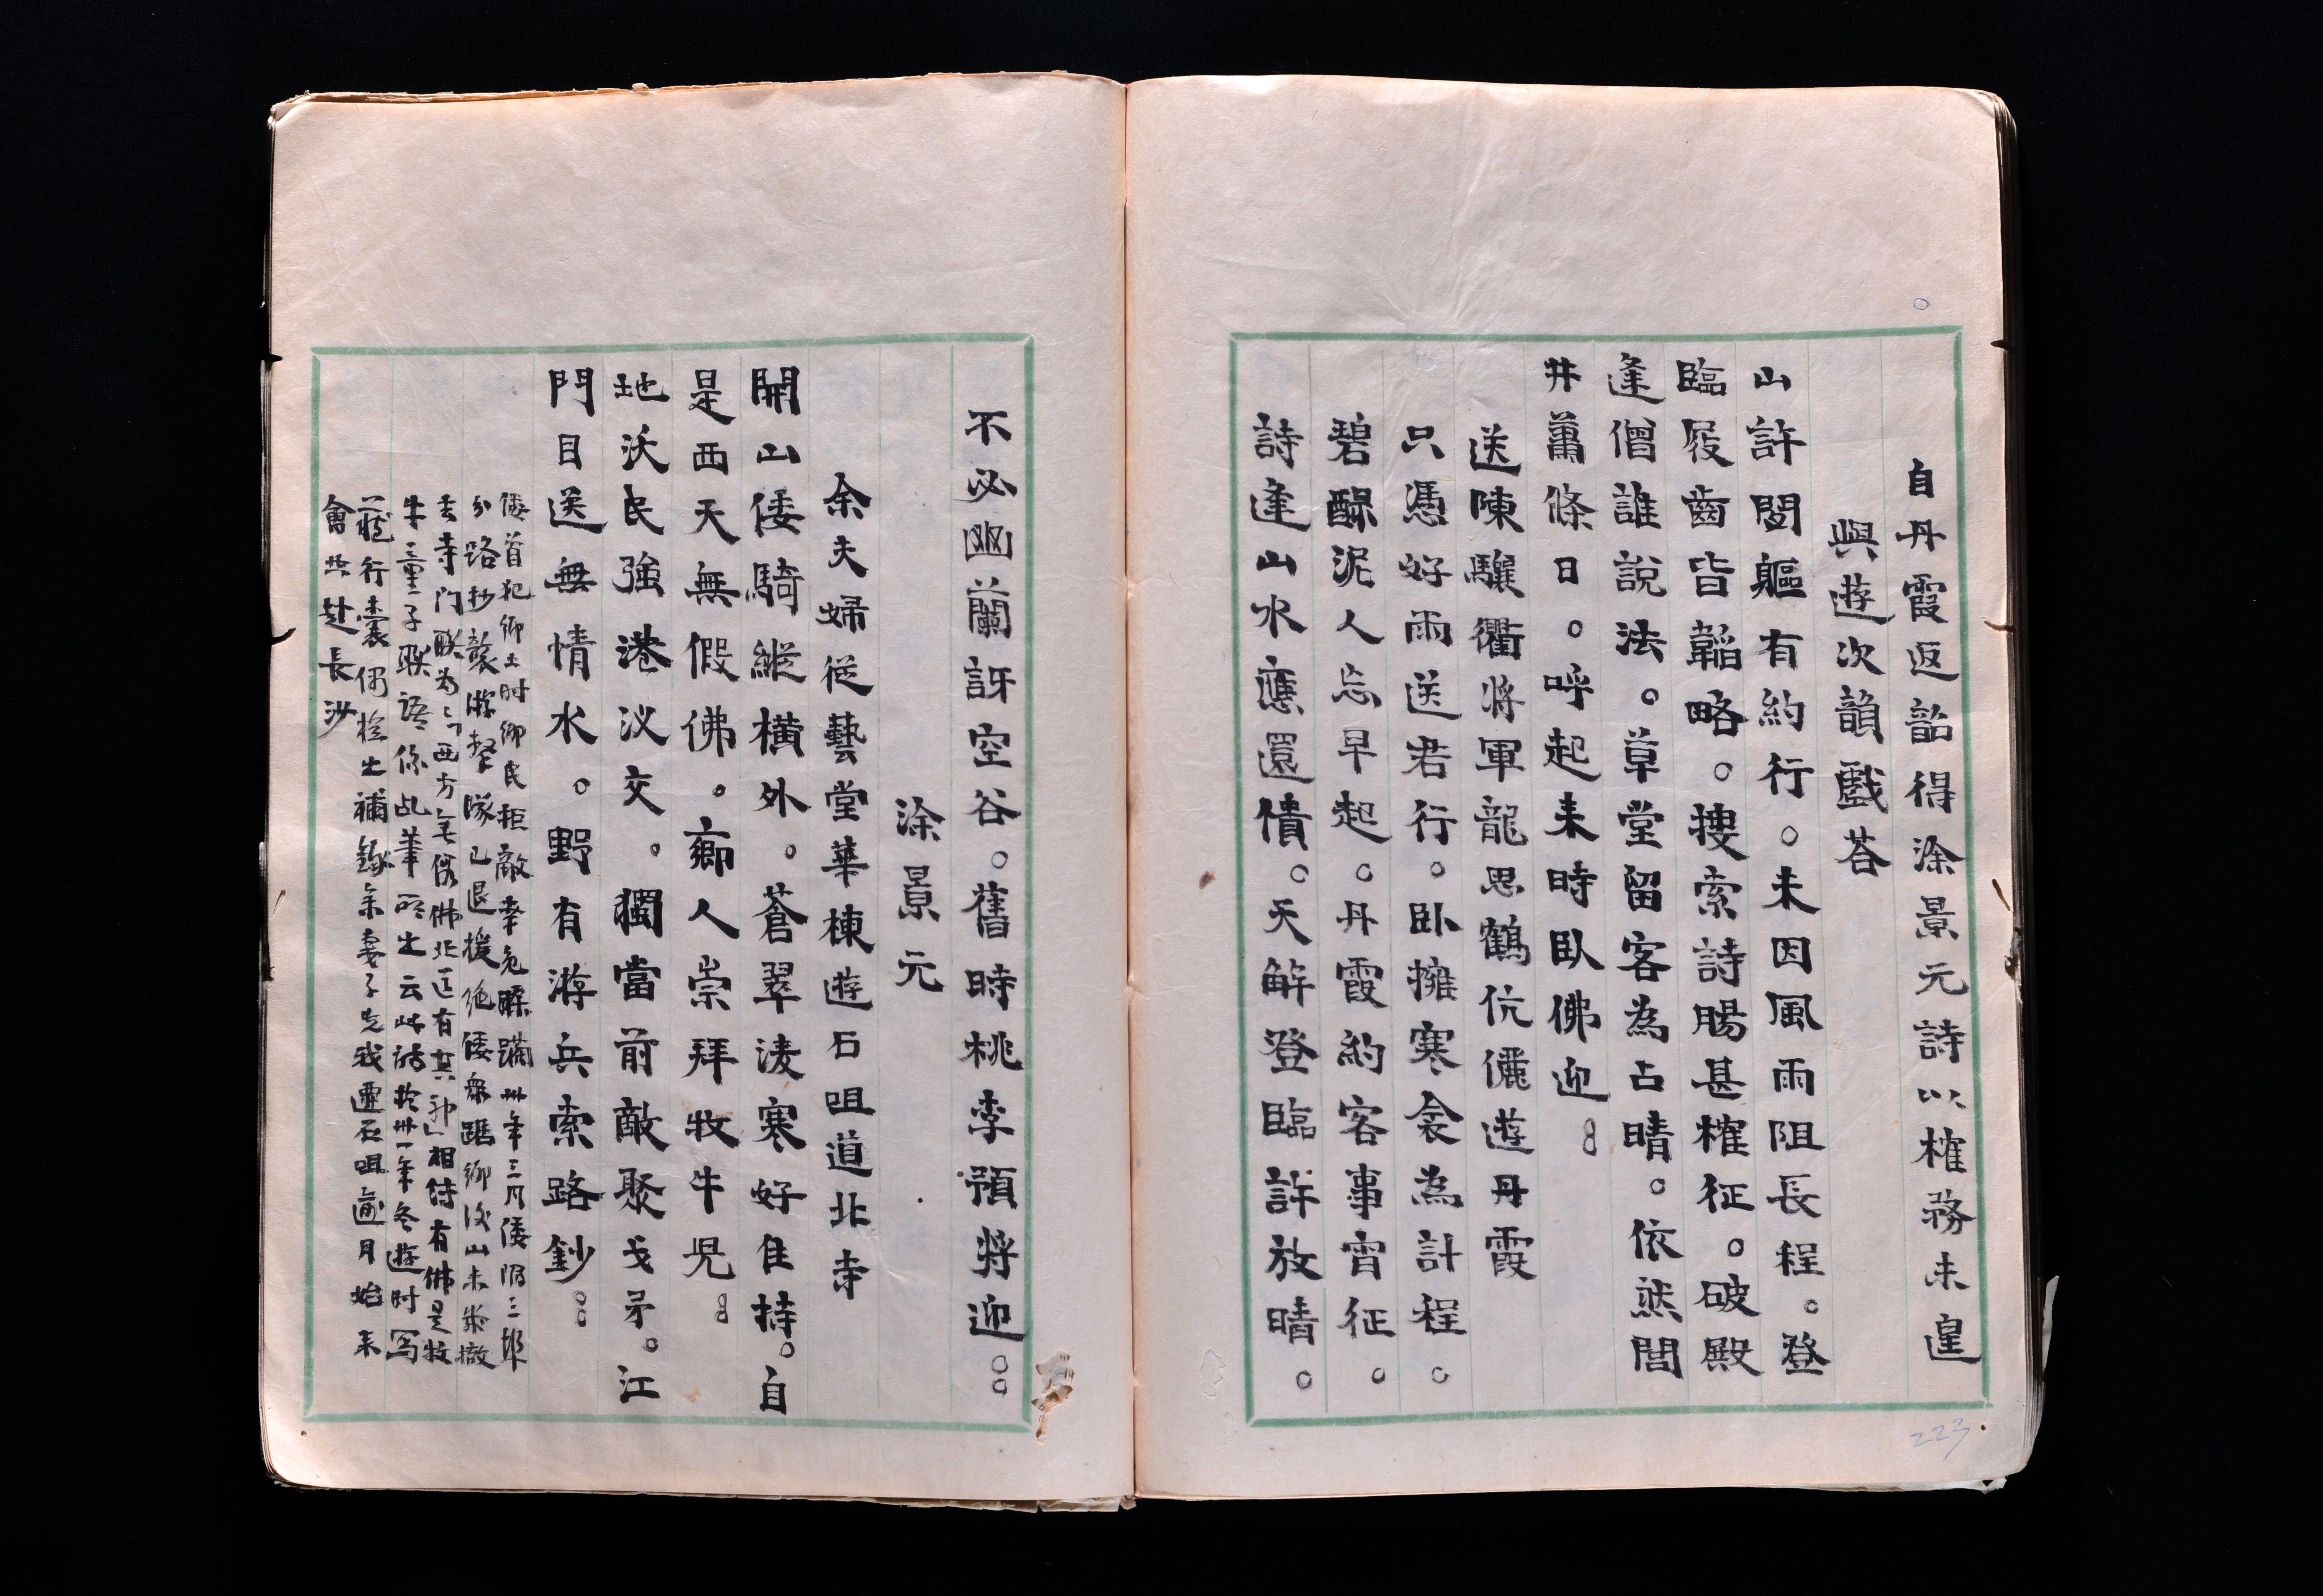 自丹霞返韶得涂景元詩以榷務未遑
與遊次韻戲荅
山許閣軀有約行。未因風雨阻長程。登
臨屐齒皆韜略。摟索詩腸甚榷征。破殿
逢僧誰說法。草堂留客為占晴。依然閣
井蕭條日。呼起来時臥佛迎。。
送陳驤衢將軍龍思鶴伉儷遊丹霞
只憑好雨送君行。卧擁寒衾為計程。
碧醁泥人忘早起。丹霞約客事宵征。
詩逢山水應還債。天解登臨許放晴。
不必幽蘭訝空谷。舊時桃李預將迎。。
涂景元
余夫婦從藝堂華棟遊石咀道北寺
開山倭騎縱橫外。蒼翠淩寒好自持。自
是西天無假佛。鄉人崇拜牧牛兒。。
地沃民強港汊交。獨當前敵聚戈矛。江
門目送無情水。野有游兵索路鈔。。
倭首犯鄉土时鄉民拒敵幸免蹂躪卅年三月倭陷三埠
分路抄襲游擊隊已退援绝倭衆踞鄉後山未幾撤
去寺门联为「西方无假佛北正有真神」相传有佛是牧
牛童子联语係乩筆所出云此诗於卅一年冬遊时写
藏行囊偶检出補錄余妻子先我遷石咀逾月始来
會共赴長沙
223